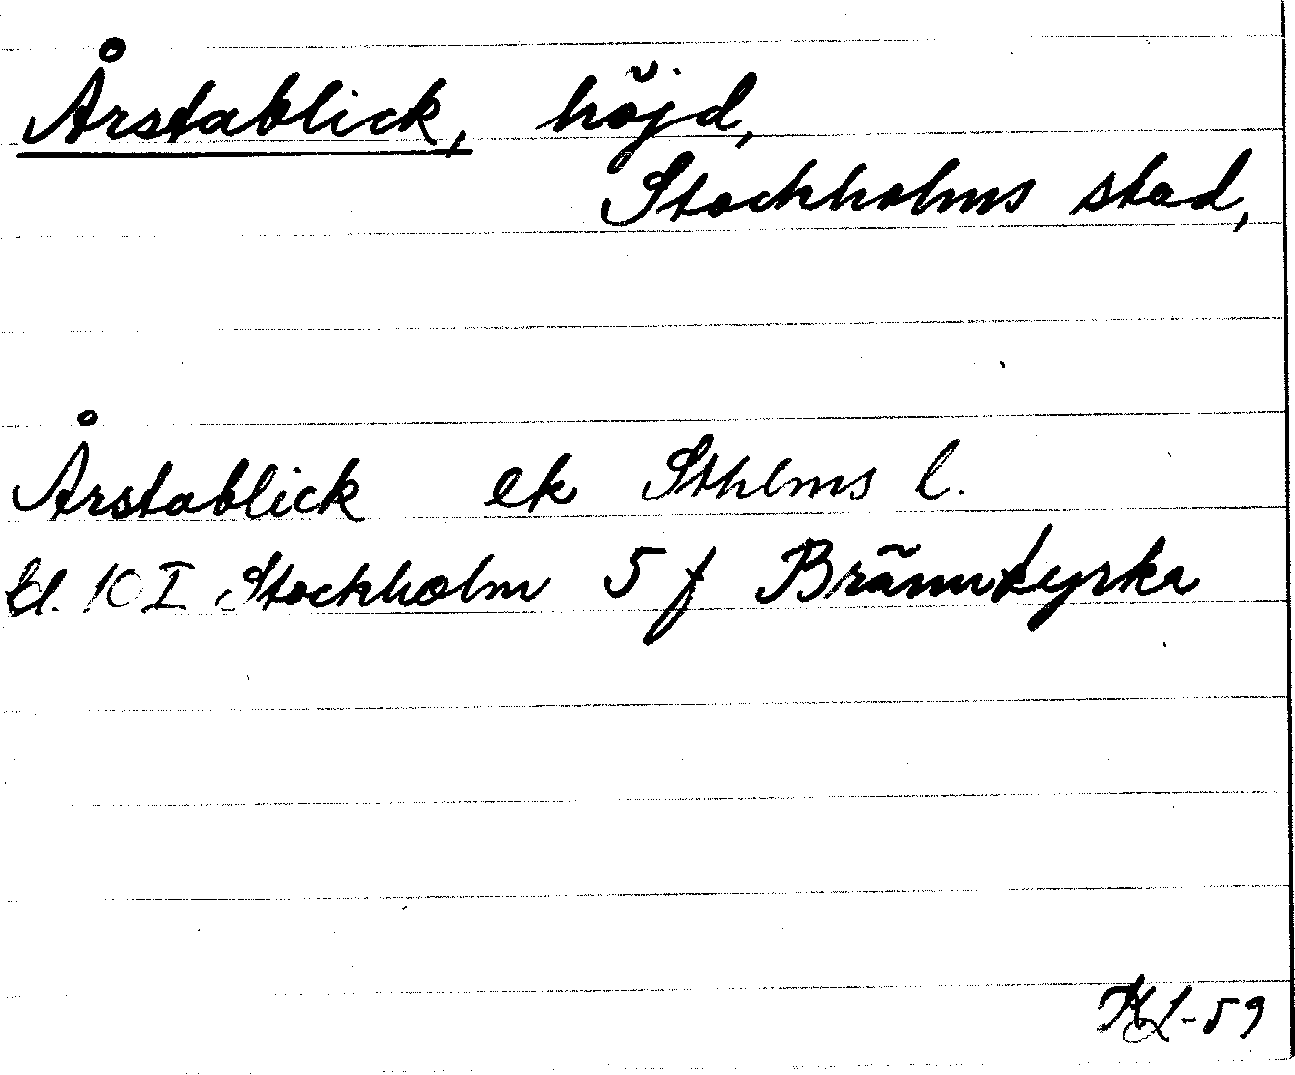 Årstablick, höjd,
Stockholms stad,
Årstablick ek Sthlms l.
bl. 10 I Stockholm 5 f Brännkyrka
-59